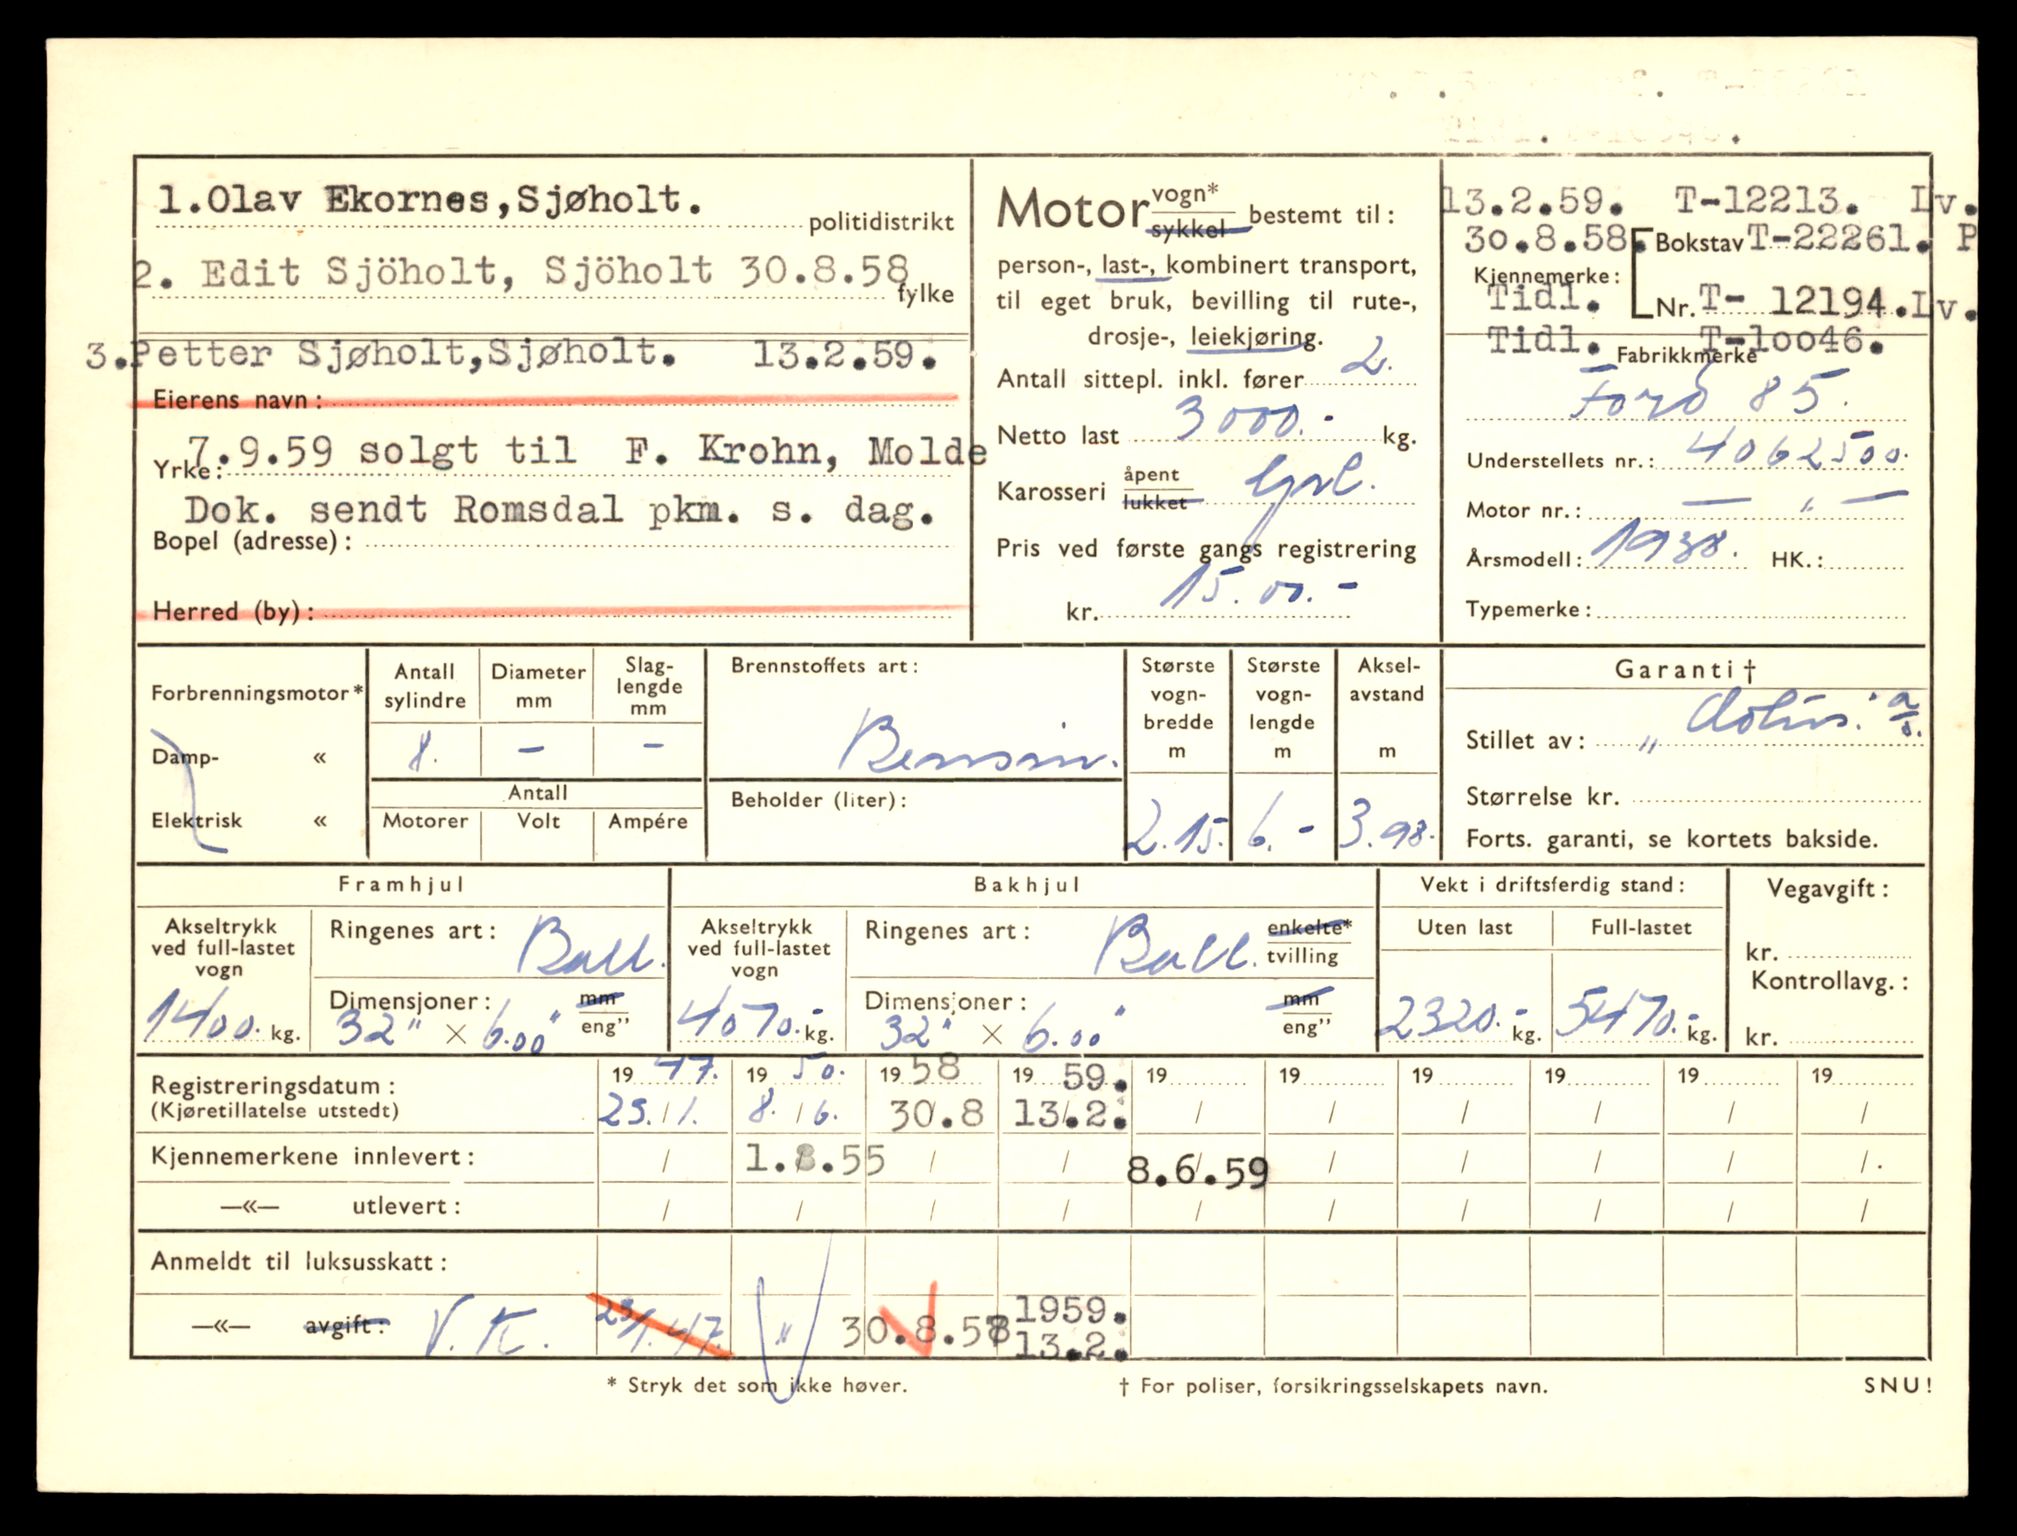 1.Olav Ekornes,Sjøholt.
politidistrikt
2. Edit Sjöholt, Sjöholt 30.8.58
fylke
3.Petter Sjøholt,Sjøholt. 13.2.59.
Eierens navn:
7.9.59 solgt til F. Krohn, Molde
Yrke:
Dok. sendt Romsdal pkm. s. dag.
Bopel (adresse):
Herred (by):
Motor vogn* sykkel bestemt til:
person-, last-, kombinert transport,
til eget bruk, bevilling til rute-,
drosje-, leiekjøring.
Antall sittepl. inkl. fører 2.
Netto last 3000.- kg.
Karosseri åpent lukket
Pris ved første gangs registrering
kr. 15.00.-
13.2.59. T-12213. Lv.
30.8.58. Bokstav T-22261. P
Kjennemerke:
Tidl. Nr. T- 12194.Lv.
Tidl. T-10046.
Fabrikkmerke
Ford 85.
Understellets nr.: 4062500.
Motor nr.: — " —
Årsmodell: 1938. HK.:
Typemerke:
Forbrenningsmotor*
Damp- «
Elektrisk «
Antall sylindre
Diameter mm
Slag-lengde mm
8. - -
Antall
Motorer Volt Ampére
Brennstoffets art:
Bensin.
Beholder (liter):
Største vogn-bredde m
2.15.
Største vogn-lengde m
6.-
Aksel-avstand m
3.98.
Garanti †
Stillet av: "
Størrelse kr.
Forts. garanti, se kortets bakside.
Framhjul
Akseltrykk ved full-lastet vogn
1400. kg.
Ringenes art: Ball.
Dimensjoner: mm
32" × 6.00" eng"
Bakhjul
Akseltrykk ved full-lastet vogn
4070.- kg.
Ringenes art: Ball. enkelte* tvilling
Dimensjoner: mm
32" × 6.00" eng"
Vekt i driftsferdig stand:
Uten last Full-lastet
2320.- kg. 5470.- kg.
Vegavgift:
kr.
Kontrollavg.:
kr.
Registreringsdatum: 19 47. 19 50. 19 58 19 59. 19 19 19 19 19 19
(Kjøretillatelse utstedt) 23./1. 8./6. 30.8 13.2. / / / / / /
Kjennemerkene innlevert: / 1.8.55 / / 8.6.59 / / / / /
—«— utlevert: / / / / / / / / / /
Anmeldt til luksusskatt:
—«— avgift: V.K. 23/1.47. " 30.8.58 1959. 13.2.
* Stryk det som ikke høver.
† For poliser, forsikringsselskapets navn.
SNU!